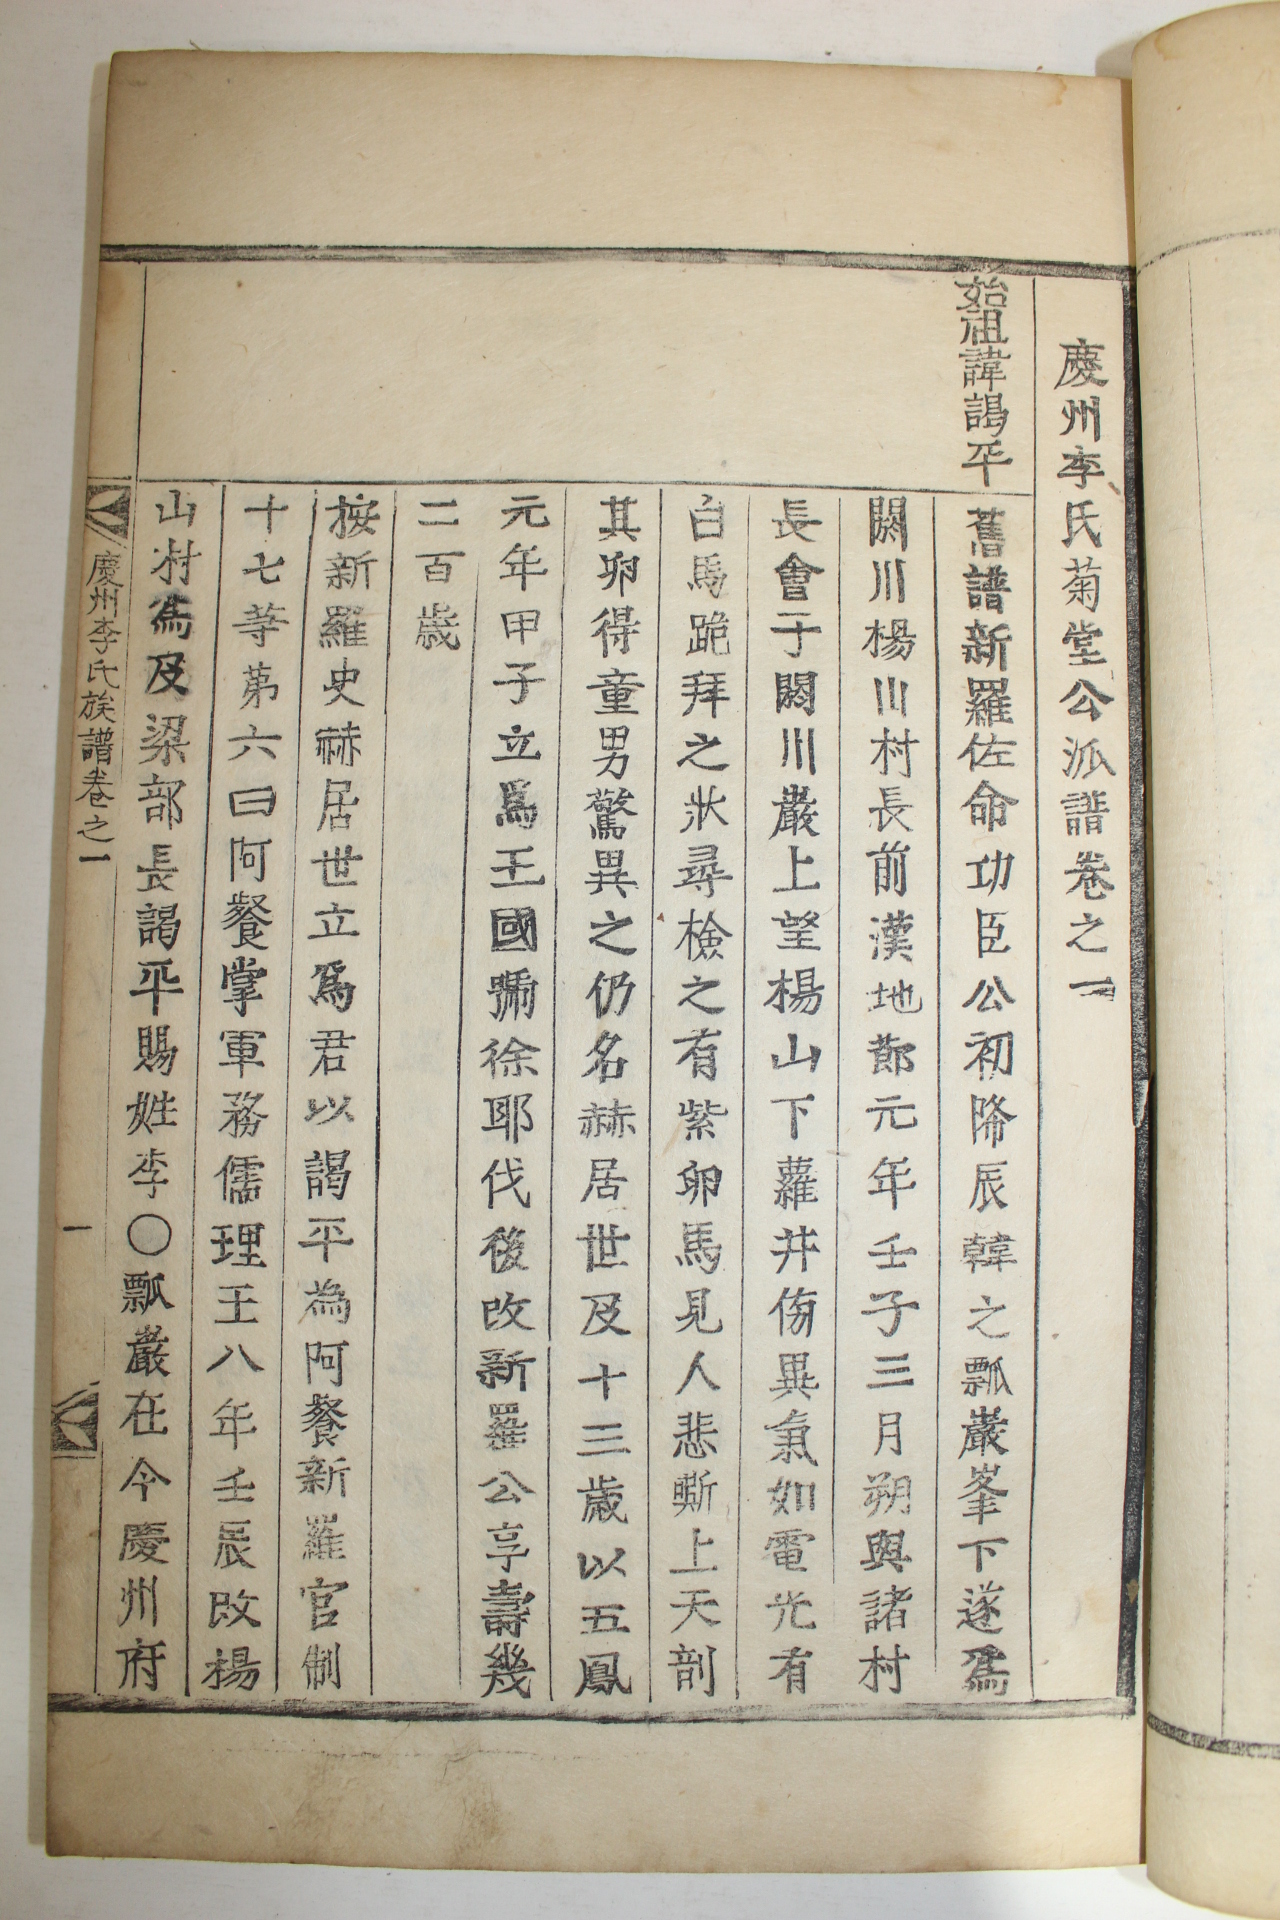 慶州李氏菊堂公派譜卷之一
始祖諱謁平
舊譜新羅佐命功臣公初降辰韓之瓢巖峯下遂爲
閼川楊山村長前漢地節元年壬子三月朔與諸村
長會于閼川巖上望楊山下蘿井傍異氣如電光有
白馬跪拜之狀尋檢之有紫卵馬見人悲嘶上天剖
其卵得童男驚異之仍名赫居世及十三歲以五鳳
元年甲子立爲王國號徐耶伐後改新羅公享壽幾
二百歲
按新羅史赫居世立爲君以謁平為阿餐新羅官制
十七等第六曰阿餐掌軍務儒理王八年壬辰改楊
山村爲及梁部長謁平賜姓李○瓢巖在今慶州府
慶州李氏族譜卷之一
一